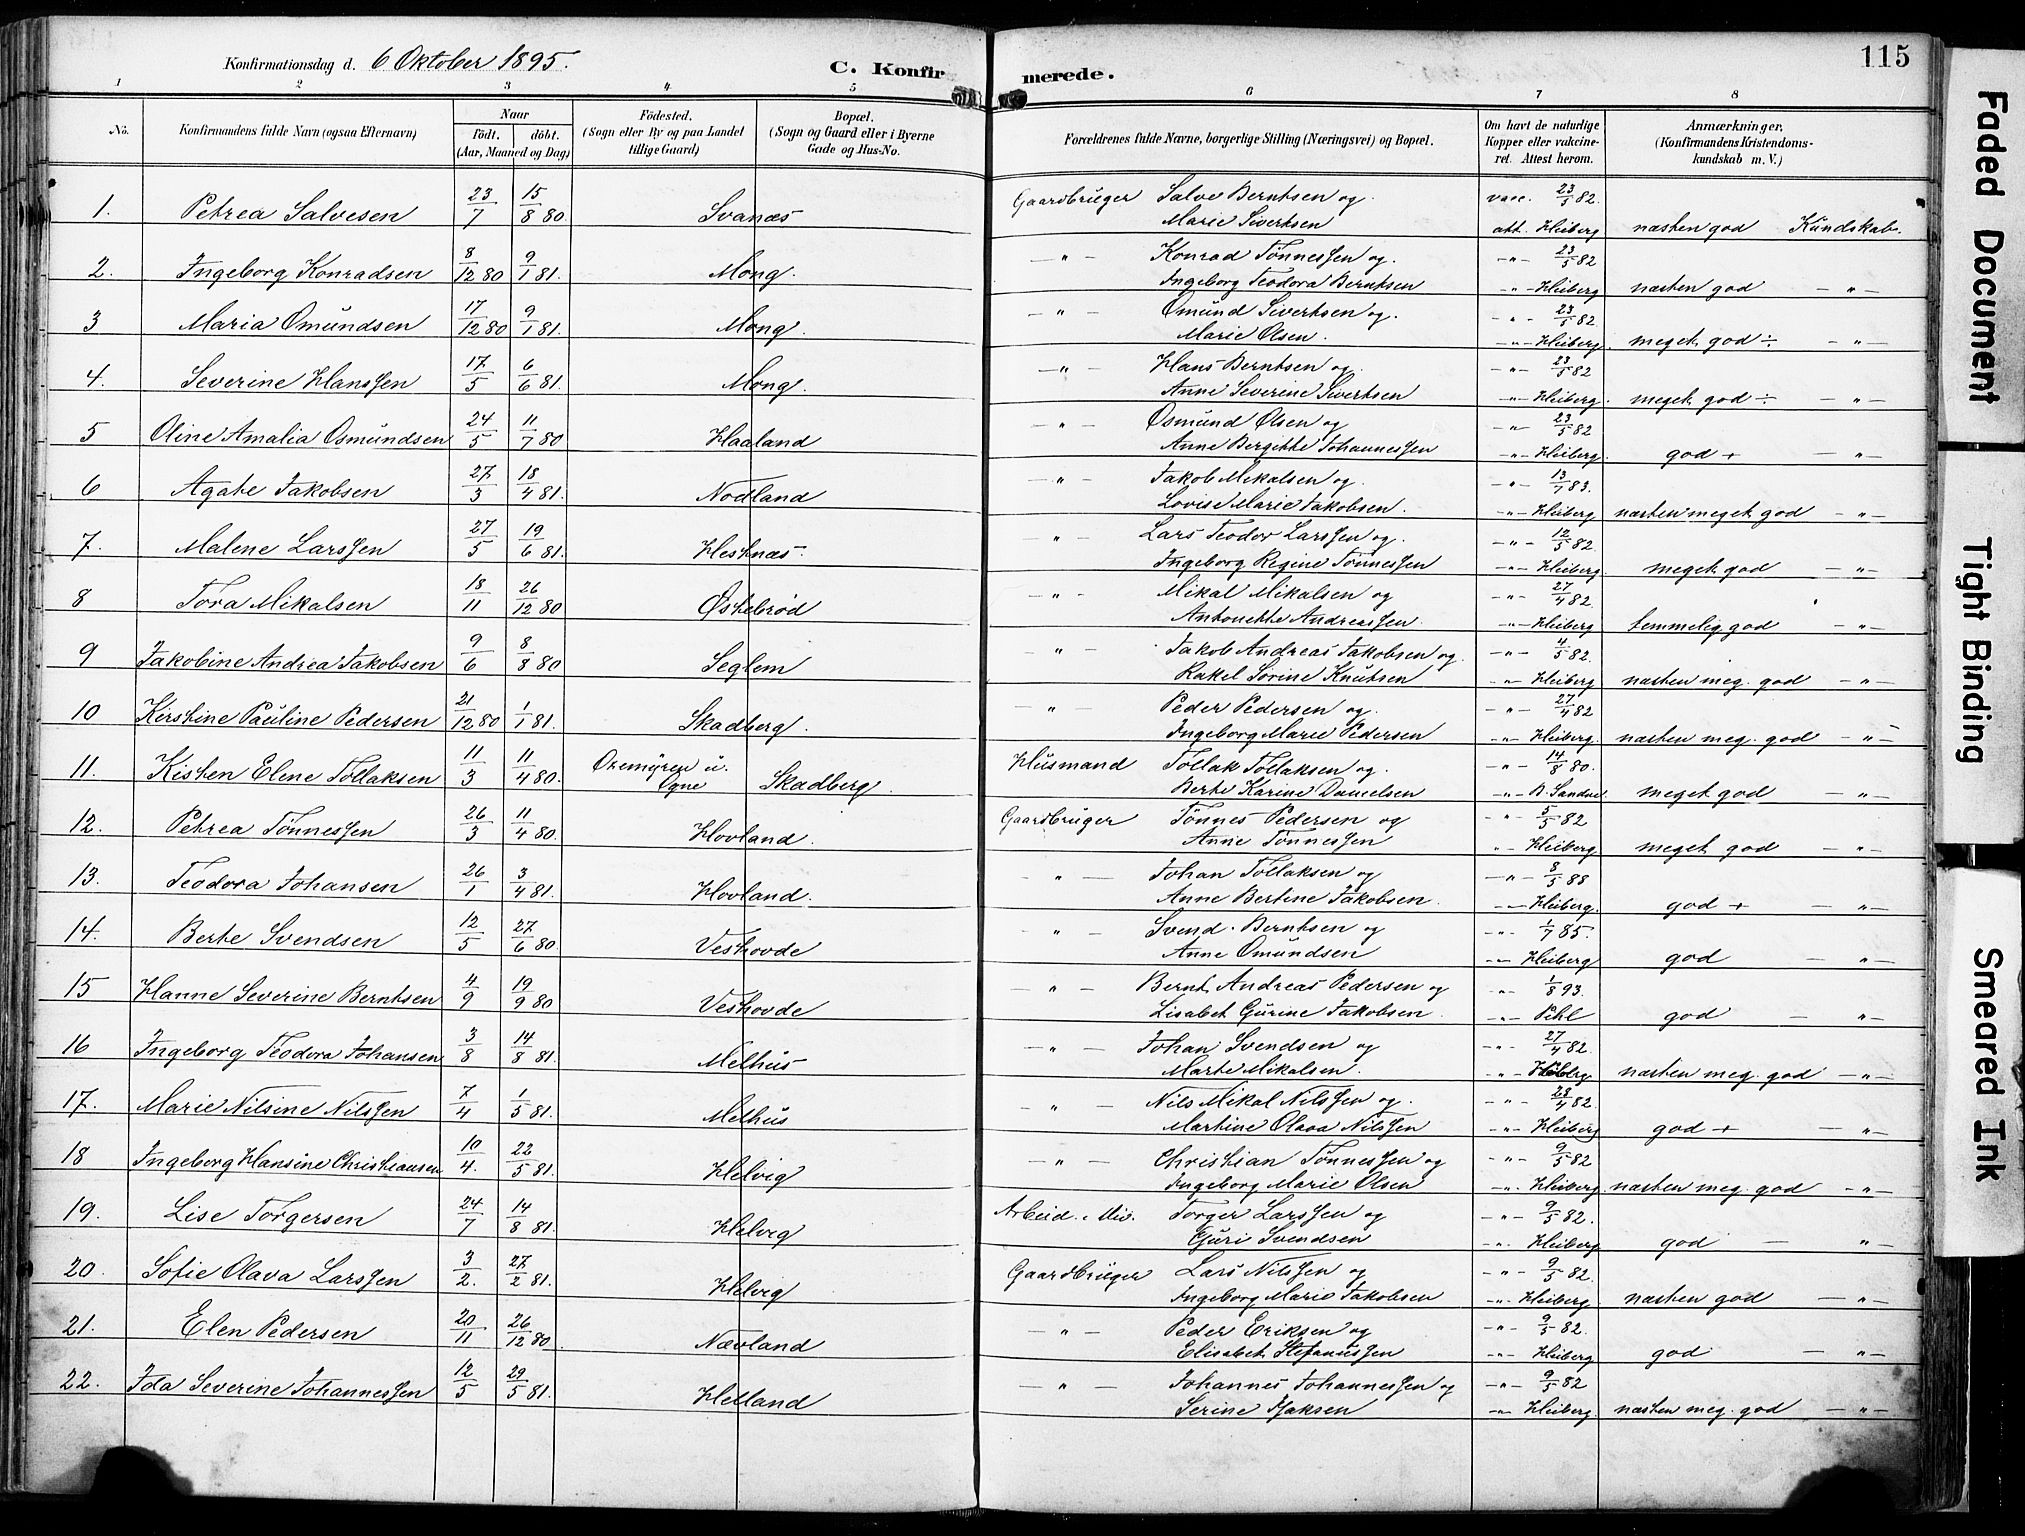 115
Konfirmationsdag d. 6 Oktober 1895.
C. Konfirmerede.
1 2 3 4 5 6 7 8
No. Konfirmandens fulde Navn (ogsaa Efternavn) Naar født. døbt. (Aar, Maaned og Dag) Fødested. (Sogn eller By og paa Landet tillige Gaard) Bopæl. (Sogn og Gaard eller i Byerne Gade og Hus-No. Forældrenes fulde Navne, borgerlige Stilling (Næringsvei) og Bopæl. Om havt de naturlige Kopper eller vakcineret. Attest herom. Anmærkninger, (Konfirmandens Kristendomskundskab m. V.)
1. Petrea Salvesen 23/7 15/8 80. Svanæs Gaardbruger Salve Berntsen og vacc. 23/5 82.
Marie Sivertsen att. Heiberg næsten god Kundskab.
2. Ingeborg Konradsen 8/12 80 9/1 81. Mong. -"- Konrad Tønnessen og -"- 23/5 82
Ingeborg Teodora Berntsen -"- Heiberg næsten god -"-
3 Maria Omundsen 17/12 80 9/1 81. Mong. -"- Omund Sivertsen og. -"- 23/5 82
Marie Olsen. -"- Heiberg. meget god ÷ -"-
4. Severine Hanssen 17/5 6/6 81. Mong. -"- Hans Berntsen og -"- 23/5 82
Anne Severine Sivertsen -"- Heiberg. meget god ÷ -"-
5 Oline Amalia Osmundsen 24/5 11/7 80 Haaland -"- Osmund Olsen og -"- 23/5 82
Anne Bergitte Johannessen -"- Heiberg. god + -"-
6 Agate Jakobsen 27/3 18/4 81. Nodland -"- Jakob Mikalsen og. -"- 13/7 83.
Lovise Marie Jakobsen. -"- Heiberg næsten meget god -"-
7. Malene Larssen 27/5 19/6 81. Hestnæs. -"- Lars Teodor Larssen og. -"- 12/5 82.
Ingeborg Regine Tønnessen -"- Heiberg. meget god -"-
8 Tora Mikalsen 18/11 26/12 80 Østebrød -"- Mikal Mikalsen og -"- 27/4 82.
Antonette Andreassen. -"- Heiberg temmelig god -"-
9 Jakobine Andrea Jakobsen 9/6 8/8 80 Seglem -"- Jakob Andreas Jakobsen og. -"- 4/5 82.
Rakel Sorine Knutsen -"- Heiberg næsten meg. god -"-
10 Kirstine Pauline Pedersen 21/12 80 1/1 81. Skadberg. -"- Peder Pedersen og. -"- 27/4 82
Ingeborg Marie Pedersen -"- Heiberg. næsten meg. god -"-
11. Kisten Elene Tollaksen 11/3 11/4 80. Oremyren u. Ogne Skadberg. Husmand Tollak Tollaksen og. -"- 14/8 80.
Berte Karine Danielsen -"- meget god -"-
12. Petrea Tønnessen 26/3 11/4 80. Hovland. Gaardbruger Tønnes Pedersen og -"- 5/5 82
Anne Tønnessen -"- Heiberg meget god -"-
13. Teodora Johansen 26/1 3/4 81. Hovland. -"- Johan Tollaksen og -"- 8/5 88
Anne Bertine Jakobsen. -"- Heiberg. god + -"-
14. Berte Svendsen 12/5 27/6 80. Veshovde -"- Svend Berntsen og -"- 1/7 85.
Anne Omundsen -"- Heiberg god -"-
15 Hanne Severine Berntsen 4/9 19/9 80 Veshovde -"- Bernt Andreas Pedersen og -"- 1/8 93.
Lisabet Gurine Jakobsen. -"- Pihl god -"-
16 Ingeborg Teodora Johansen 3/8 14/8 81. Melhus -"- Johan Svendsen og -"- 27/4 82.
Marte Mikalsen. -"- Heiberg næsten meg. god -"-
17. Marie Nilsine Nilssen 7/4 1/5 81. Melhus -"- Nils Mikal Nilssen og. -"- 28/4 82.
Martine Olava Nilssen -"- Heiberg god + -"-
18 Ingeborg Hansine Christiansen 10/4. 22/5 81. Helvig -"- Christian Tønnessen og -"- 9/5 82
Ingeborg Marie Olsen -"- Heiberg. næsten meg. god -"-
19. Lise Torgersen 24/7 14/8 81. Helvig Arbeid. Torger Larssen og -"- 9/5 82.
Guri Svendsen -"- Heiberg god -"-
20. Sofie Olava Larssen 3/2. 27/2 81. Helvig Gaardbruger Lars Nilssen og -"- 9/5 82.
Ingeborg Marie Jakobsen -"- Heiberg næsten god -"-
21. Elen Pedersen 20/11 26/12 80. Nævland -"- Peder Eriksen og -"- 9/5 82.
Elisabet Stefanussen -"- Heiberg god -"-
22. Ida Severine Johannessen 12/5 29/5 81. Helland -"- Johannes Johannessen og -"- 9/5 82
Serine Isaksen -"- Heiberg. næsten meg. god -"-
Faded Document
Tight Binding
Smeared Ink